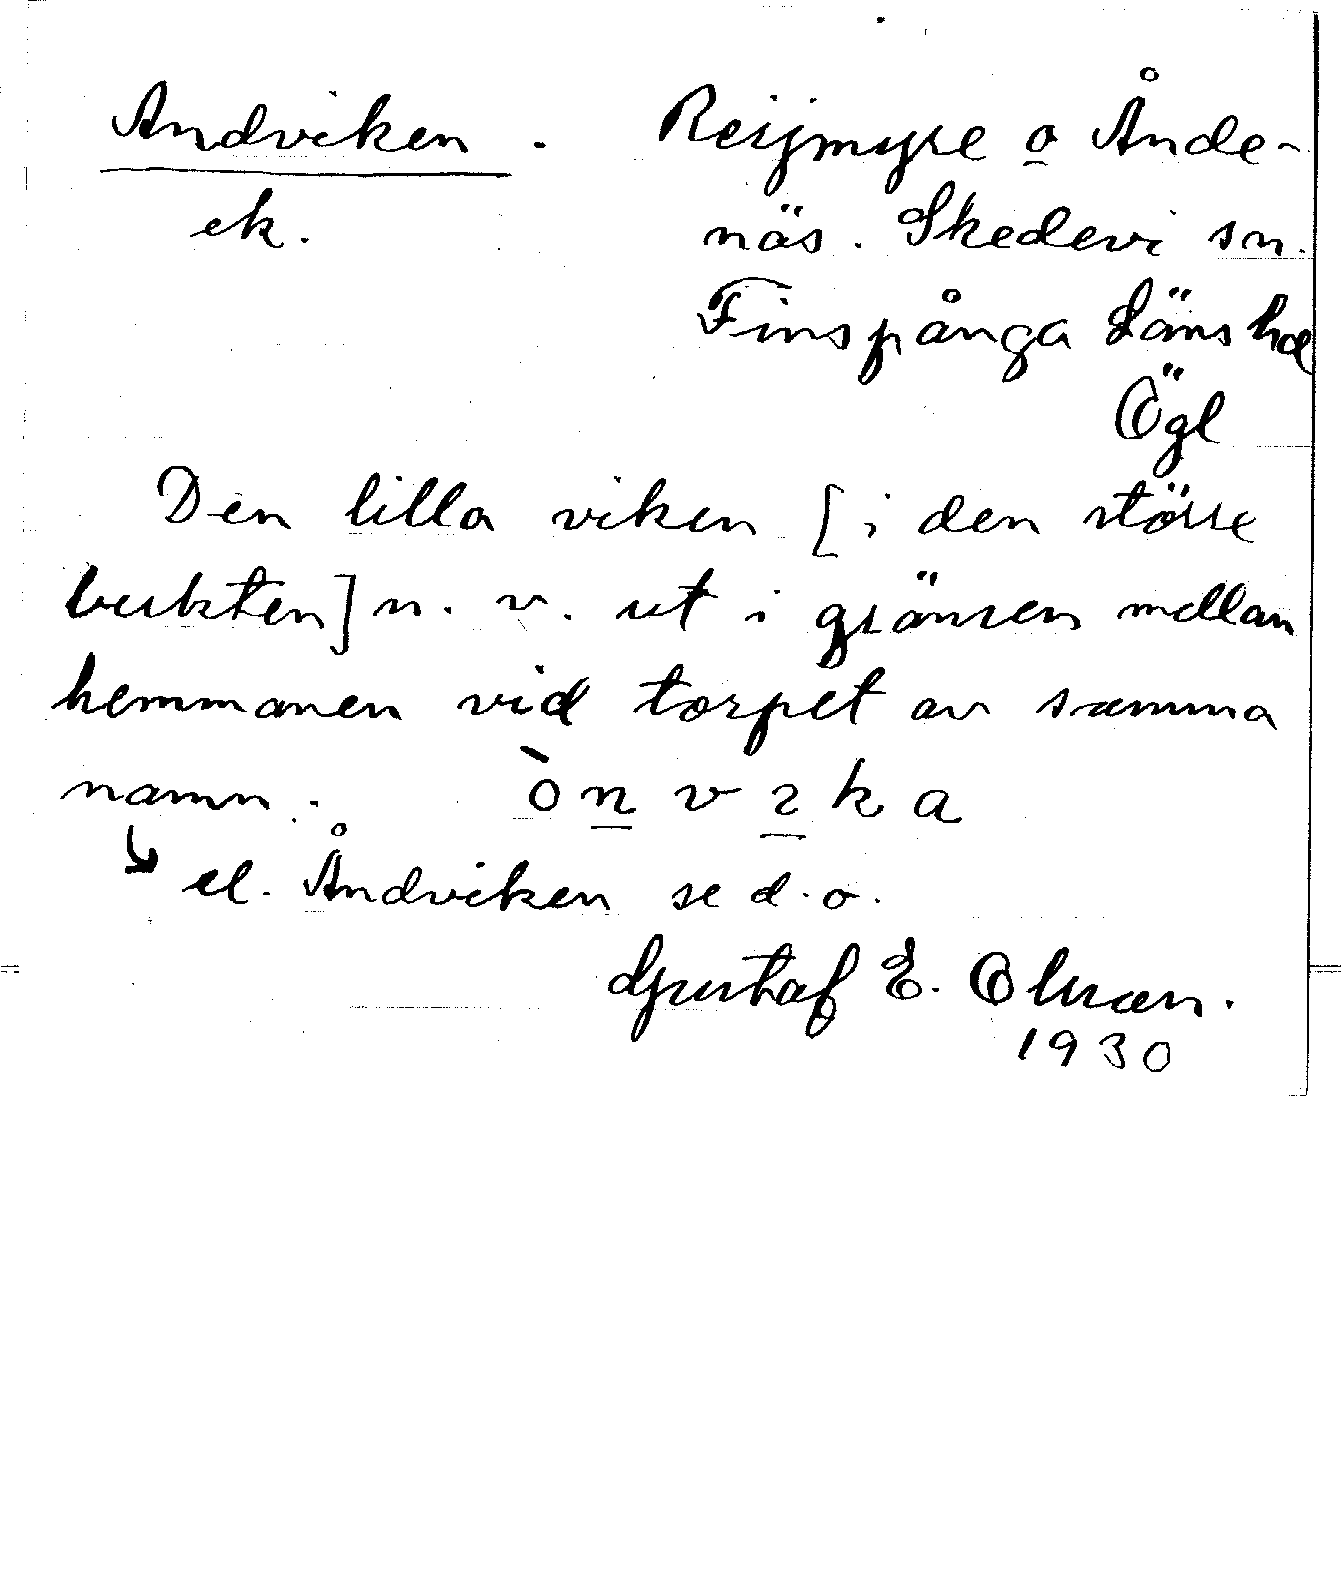 Andviken. Reijmyre o Ånde-
ek. näs. Skedevi sn.
Finspånga Läns hd
Ögl
Den lilla viken [i den större
bukten] n. v. ut i gränsen mellan
hemmanen vid torpet av samma
namn. ònvıka
el. Åndviken se d. o.
Gustaf E. Olsson.
1930